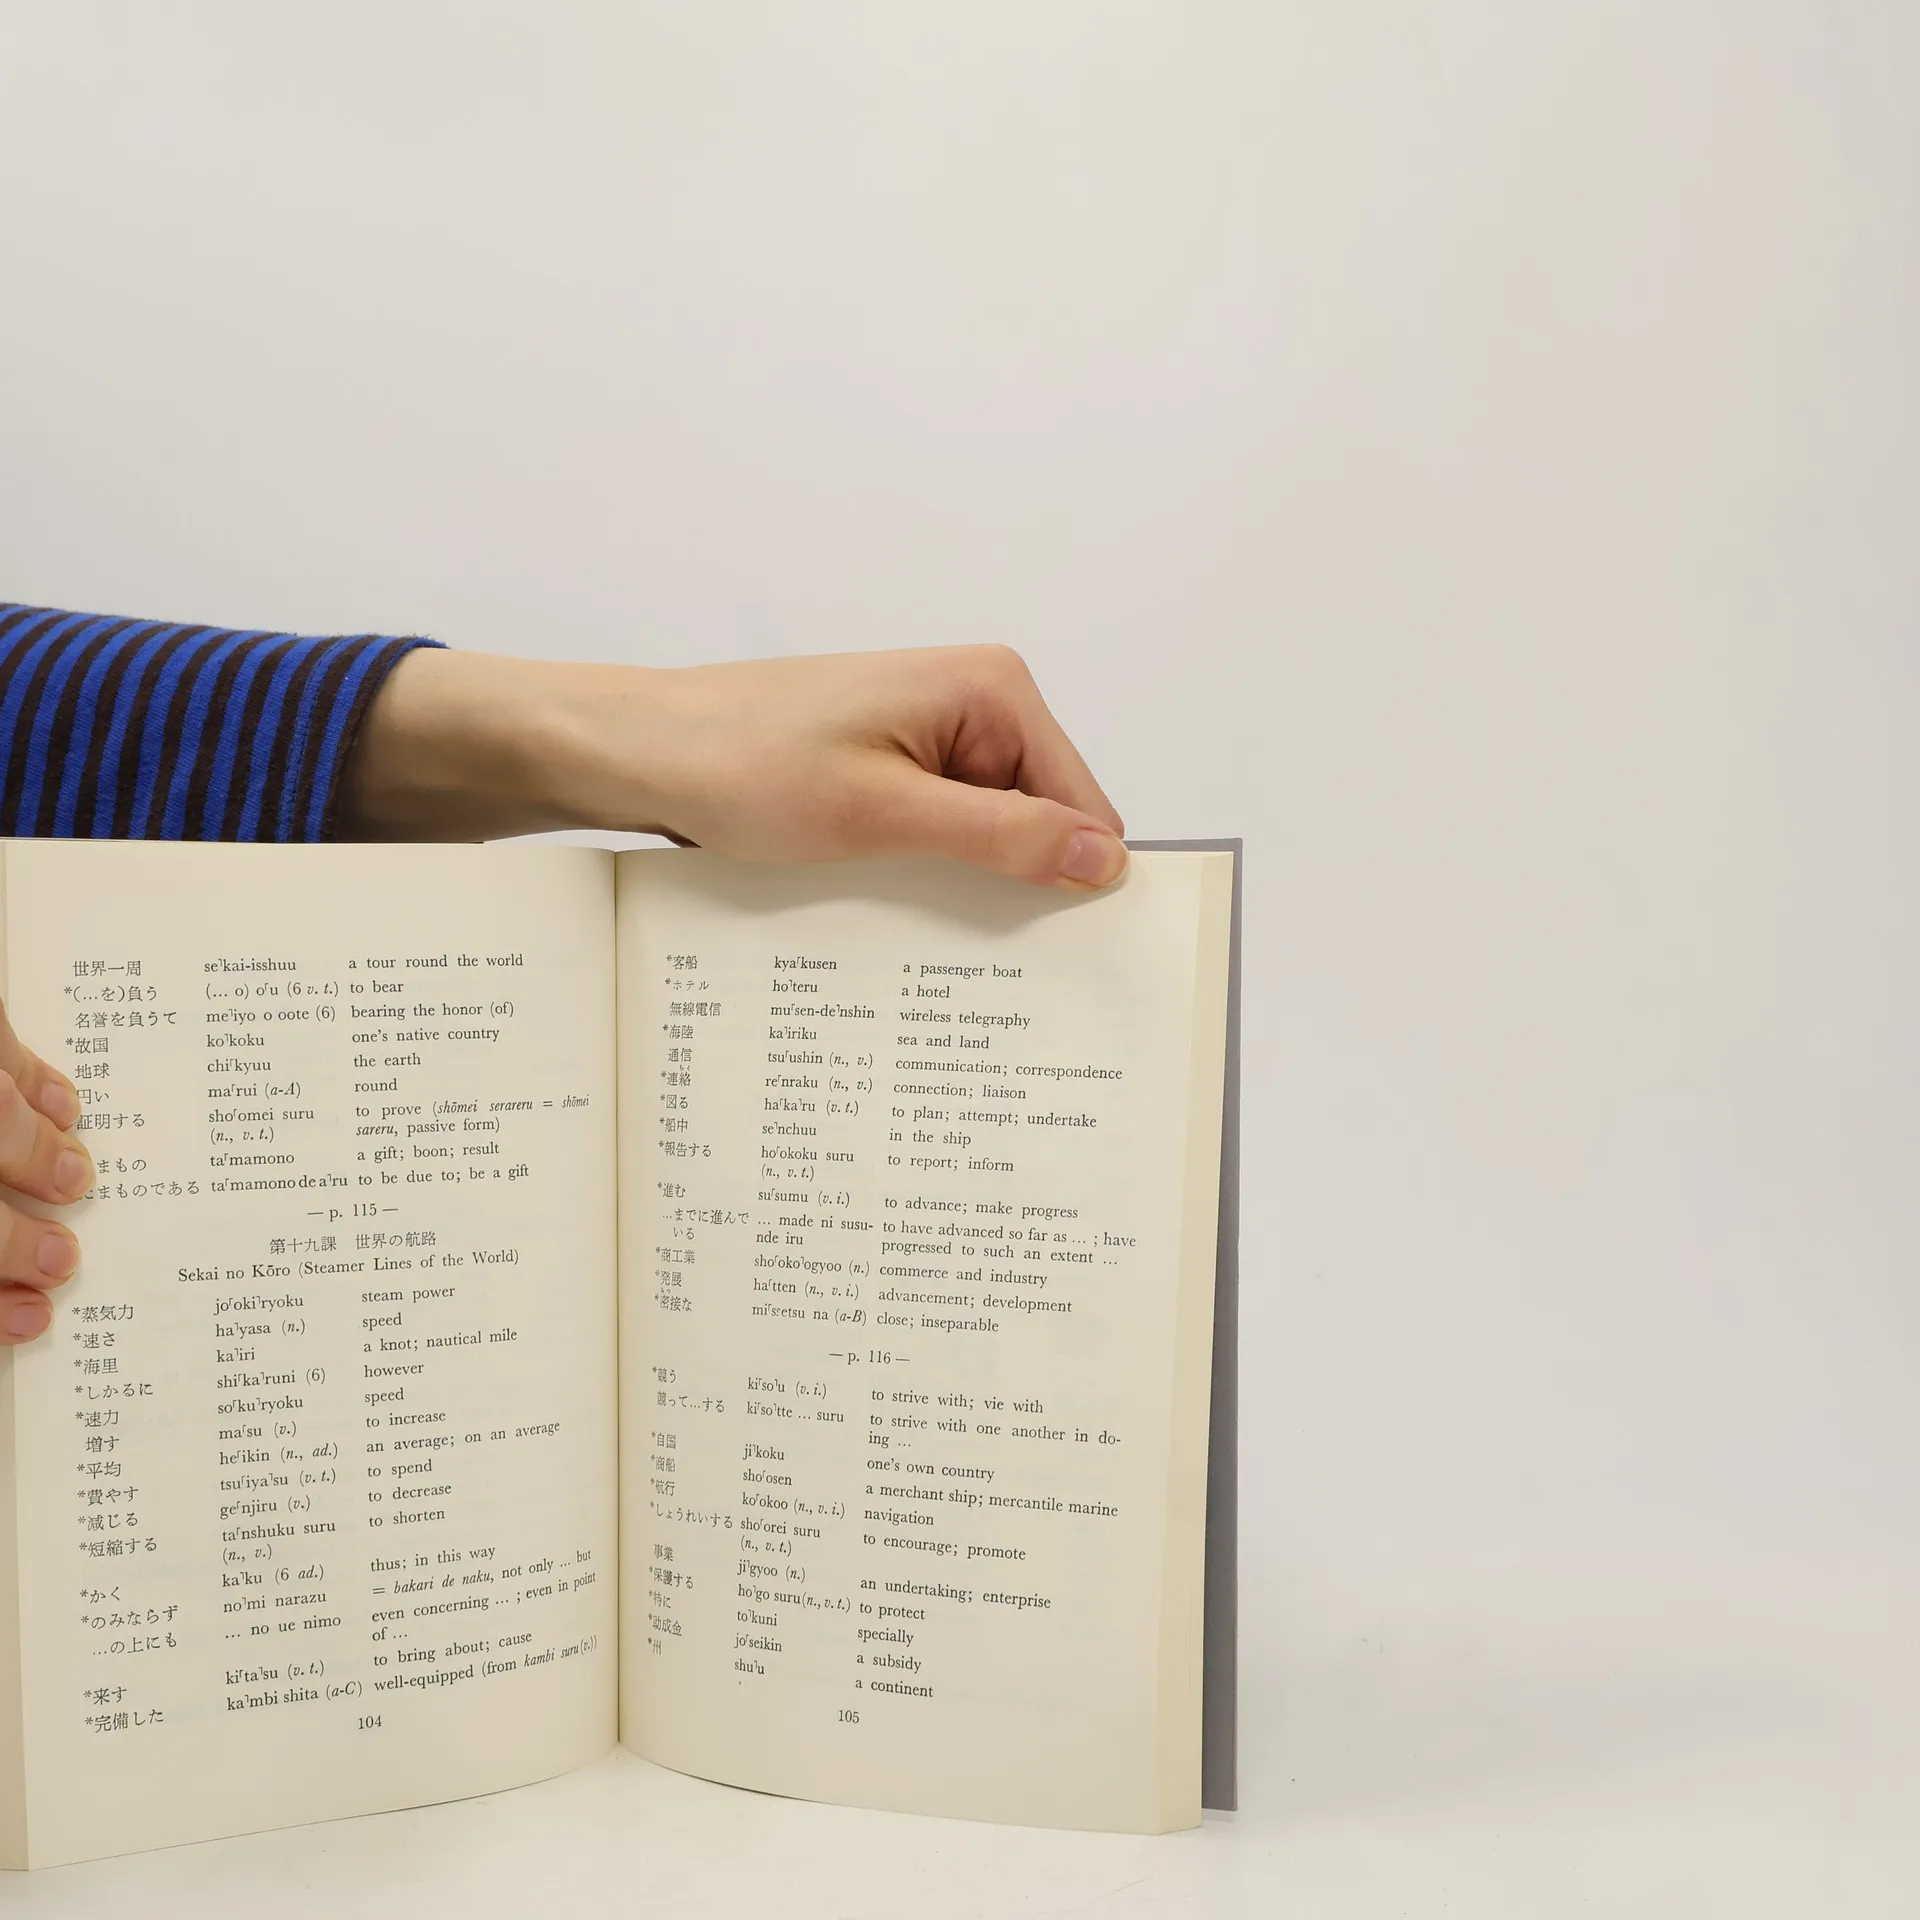 世界一周 se˥kai-isshuu a tour round the world
*(…を)負う (… o) o˹u (6 v. t.) to bear
名誉を負うて me˥iyo o oote (6) bearing the honor (of)
*故国 ko˥koku one's native country
地球 chi˹kyuu the earth
円い ma˹rui (a-A) round
証明する sho˹omei suru to prove (shōmei serareru = shōmei
(n., v. t.) sareru, passive form)
まもの ta˹mamono a gift; boon; result
たまものである ta˹mamono de a˥ru to be due to; be a gift
— p. 115 —
第十九課 世界の航路
Sekai no Kōro (Steamer Lines of the World)
*蒸気力 jo˹oki˥ryoku steam power
*速さ ha˥yasa (n.) speed
*海里 ka˥iri a knot; nautical mile
*しかるに shi˹ka˥runi (6) however
*速力 so˹ku˥ryoku speed
増す ma˹su (v.) to increase
*平均 he˹ikin (n., ad.) an average; on an average
*費やす tsu˹iya˥su (v. t.) to spend
*減じる ge˹njiru (v.) to decrease
*短縮する ta˹nshuku suru to shorten
(n., v.)
*かく ka˥ku (6 ad.) thus; in this way
*のみならず no˥mi narazu = bakari de naku, not only … but
…の上にも … no ue nimo even concerning … ; even in point
of …
*来す ki˹ta˥su (v. t.) to bring about; cause
*完備した ka˥mbi shita (a-C) well-equipped (from kambi suru (v.))
104
*客船 kya˹kusen a passenger boat
*ホテル ho˥teru a hotel
無線電信 mu˹sen-de˥nshin wireless telegraphy
*海陸 ka˥iriku sea and land
通信 tsu˹ushin (n., v.) communication; correspondence
らく
*連絡 re˹nraku (n., v.) connection; liaison
*図る ha˹ka˥ru (v. t.) to plan; attempt; undertake
*船中 se˥nchuu in the ship
*報告する ho˹okoku suru to report; inform
(n., v. t.)
*進む su˹sumu (v. i.) to advance; make progress
…までに進んで … made ni susu- to have advanced so far as … ; have
いる nde iru progressed to such an extent …
*商工業 sho˹oko˥ogyoo (n.) commerce and industry
*発展 ha˹tten (n., v. i.) advancement; development
みっ
*密接な mi˹ssetsu na (a-B) close; inseparable
— p. 116 —
*競う ki˹so˥u (v. i.) to strive with; vie with
競って…する ki˹so˥tte … suru to strive with one another in do-
ing …
*自国 ji˥koku one's own country
*商船 sho˹osen a merchant ship; mercantile marine
*航行 ko˹okoo (n., v. i.) navigation
*しょうれいする sho˹orei suru to encourage; promote
(n., v. t.)
事業 ji˥gyoo (n.) an undertaking; enterprise
*保護する ho˥go suru (n., v. t.) to protect
*特に to˥kuni specially
*助成金 jo˹seikin a subsidy
*州 shu˥u a continent
105